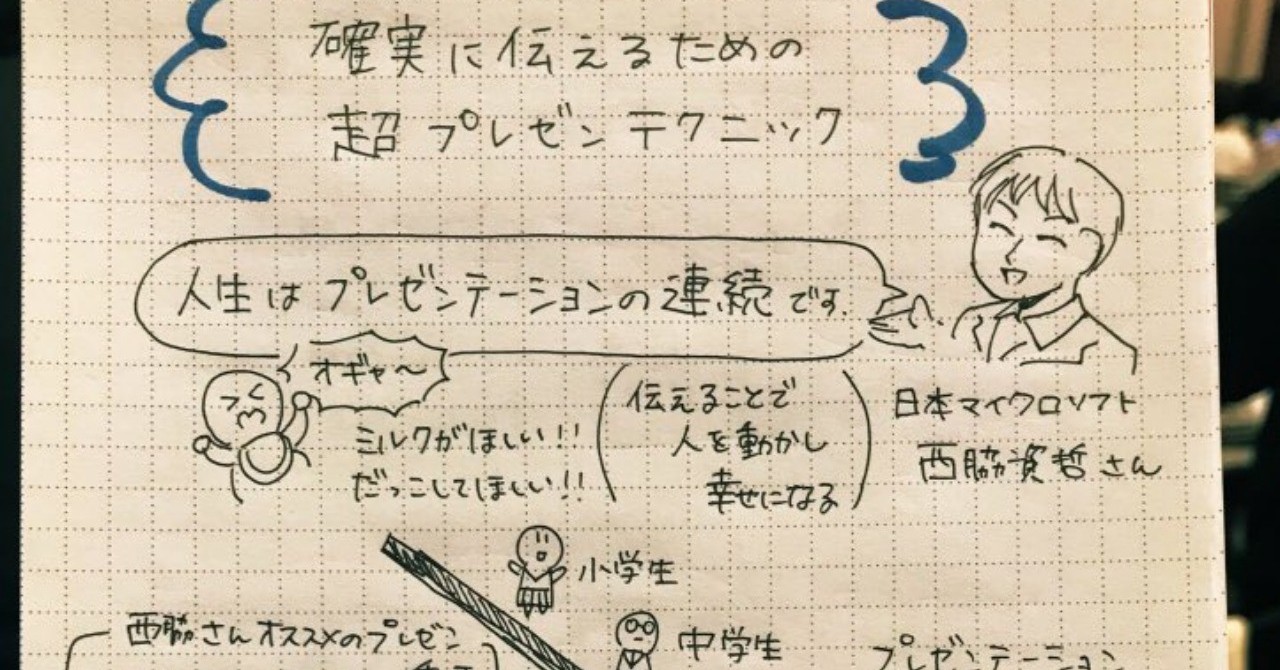 確実に伝えるための
超プレゼンテクニック
人生はプレゼンテーションの連続です.
オギャ〜
ミルクがほしい!!
だっこしてほしい!!
伝えることで
人を動かし
幸せになる
日本マイクロソフト
西脇資哲さん
小学生
西脇さんオススメのプレゼン
中学生
プレゼンテーション